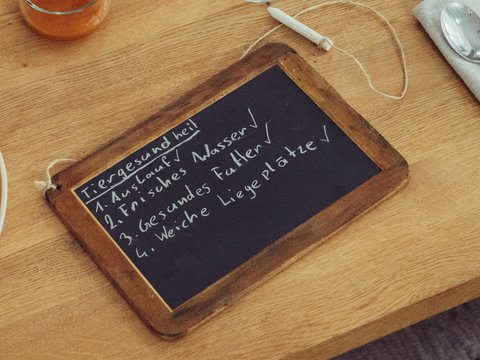 Tiergesundheit
1. Auslauf ✓
2. Frisches Wasser ✓
3. Gesundes Futter ✓
4. Weiche Liegeplätze ✓